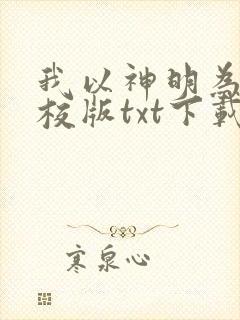 我以神明为
校版txt下载
寒泉心